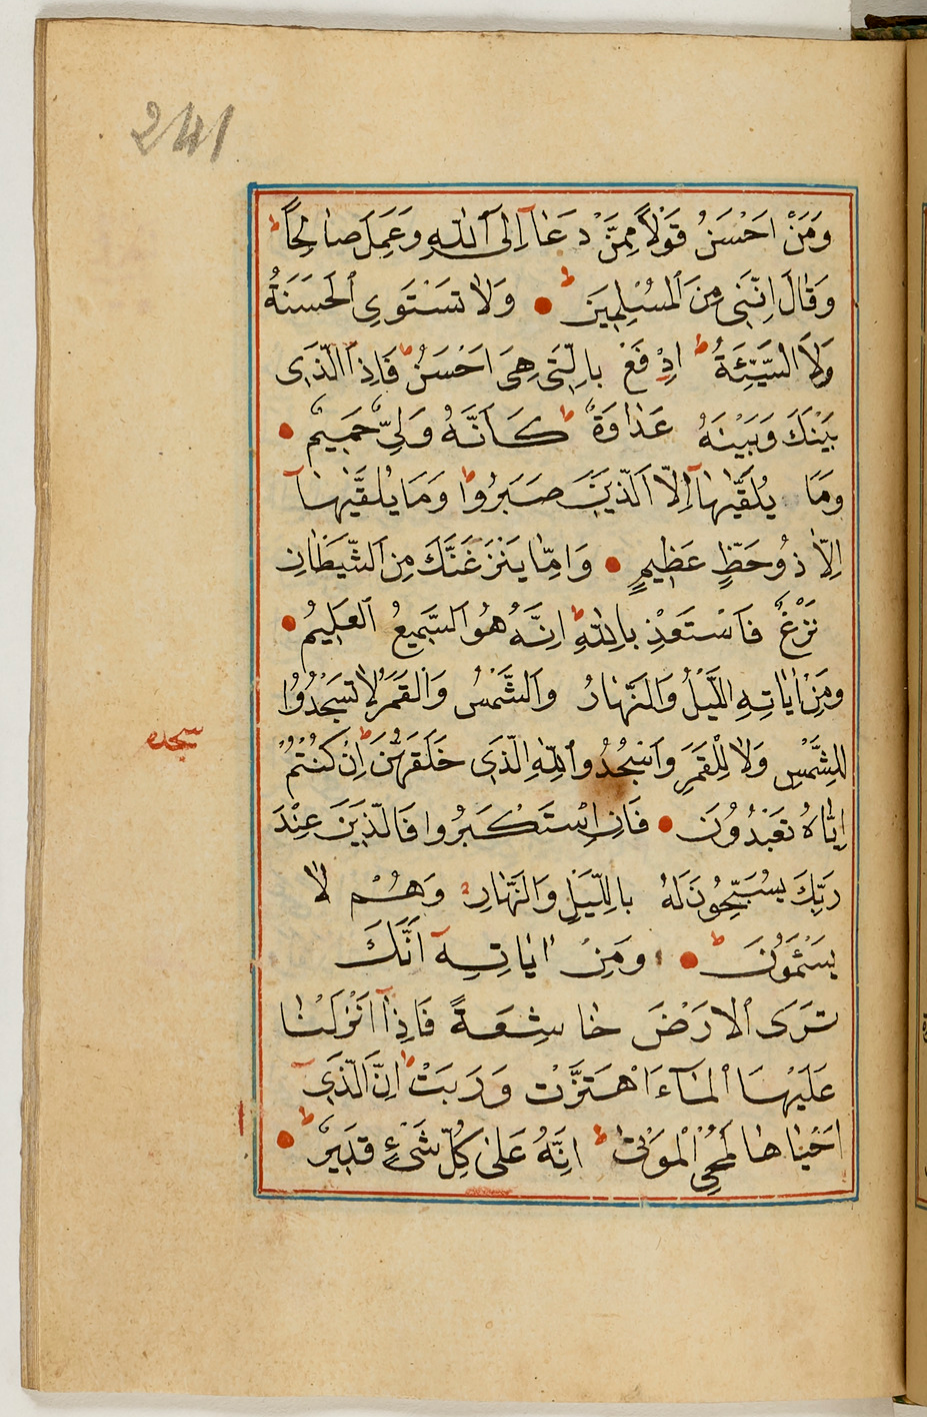 241
وَمَنْ اَحْسَنُ قَوْلاً مِمَّنْ دَعَآ اِلَى اللّٰهِ وَعَمِلَ صَالِحاً ط
وَقَالَ اِنَّنِى مِنَ الْمُسْلِمِينَ ط وَلَا تَسْتَوِى الْحَسَنَةُ
وَلَا السَّيِّئَةُ ط اِدْفَعْ بِالَّتِى هِىَ اَحْسَنُ ط فَاِذَا الَّذِى
بَيْنَكَ وَبَيْنَهُ عَدَاوَةٌ ط كَاَنَّهُ وَلِىٌّ حَمِيمٌ
وَمَا يُلَقّٰيهَآ اِلَّا الَّذِينَ صَبَرُوا ط وَمَا يُلَقّٰيهَآ
اِلَّا ذُو حَظٍّ عَظِيمٍ وَاِمَّا يَنْزَغَنَّكَ مِنَ الشَّيْطَانِ
نَزْغٌ فَاسْتَعِذْ بِاللّٰهِ ط اِنَّهُ هُوَ السَّمِيعُ الْعَلِيمُ
وَمِنْ اٰيَاتِهِ اللَّيْلُ وَالنَّهَارُ وَالشَّمْسُ وَالْقَمَرُ لَا تَسْجُدُوا
لِلشَّمْسِ وَلَا لِلْقَمَرِ وَاسْجُدُوا لِلّٰهِ الَّذِى خَلَقَهُنَّ ط اِنْ كُنْتُمْ
سجده
اِيَّاهُ تَعْبُدُونَ فَاِنِ اسْتَكْبَرُوا فَالَّذِينَ عِنْدَ
رَبِّكَ يُسَبِّحُونَ لَهُ بِاللَّيْلِ وَالنَّهَارِ وَهُمْ لَا
يَسْئَمُونَ ط وَمِنْ اٰيَاتِهِ اَنَّكَ
تَرَى الْاَرْضَ خَاشِعَةً فَاِذَآ اَنْزَلْنَا
عَلَيْهَا الْمَآءَ اهْتَزَّتْ وَرَبَتْ ط اِنَّ الَّذِى
اَحْيَاهَا لَمُحْىِ الْمَوْتٰى ط اِنَّهُ عَلٰى كُلِّ شَىْءٍ قَدِيرٌ ط